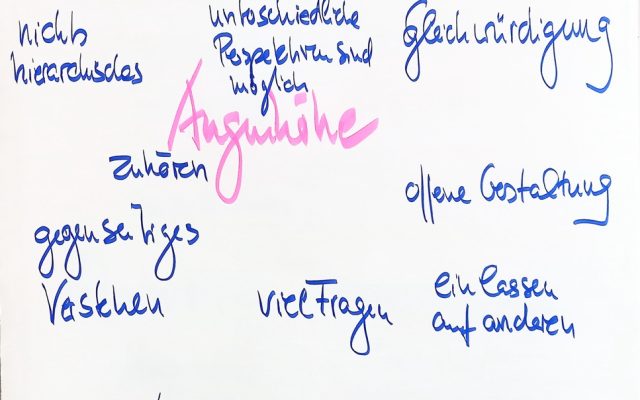 nichts
hierarchisches
unterschiedliche
Perspektiven sind
möglich
Gleichwürdigung
Augenhöhe
zuhören
offene Gestaltung
gegenseitiges
Verstehen
viel Fragen
einlassen
auf anderen